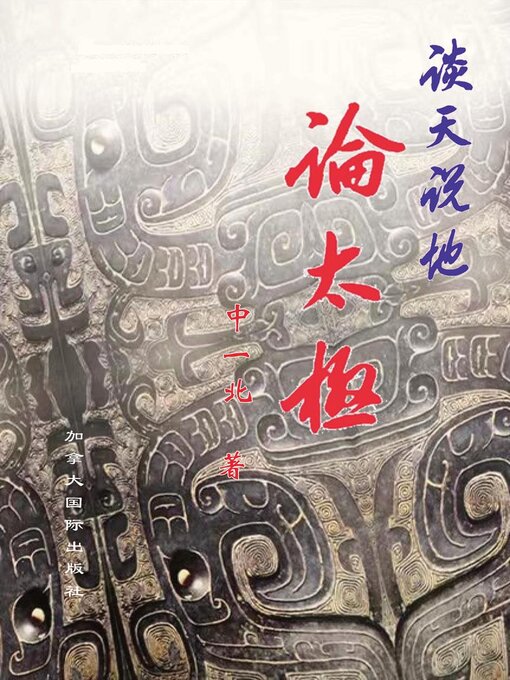 谈天说地
論太極
中一北 著
加拿大国际出版社